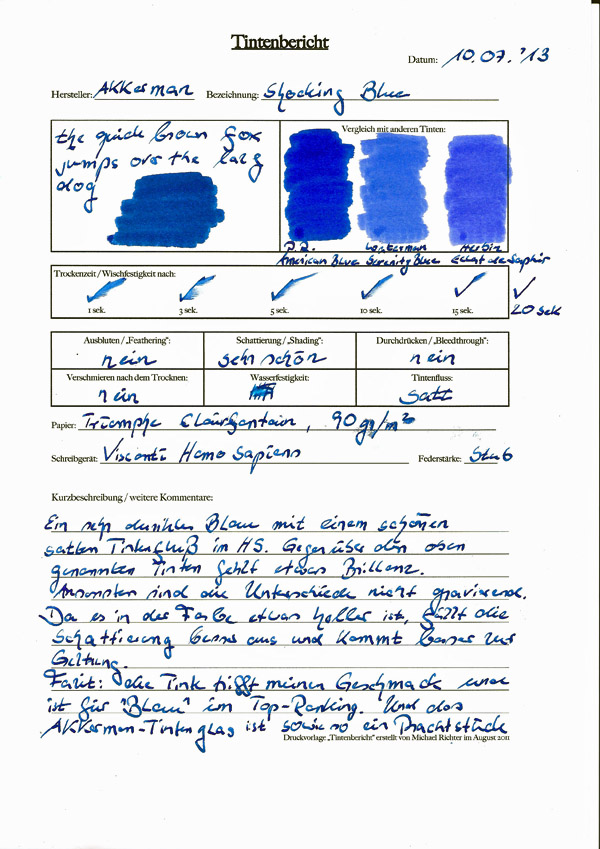 Tintenbericht
Datum: 10.07.'13
Hersteller: AKKerman Bezeichnung: Shocking Blue
the quick brown fox
jumps over the lazy
dog
Vergleich mit anderen Tinten:
P.R. American Blue
Waterman Serenity Blue
Herbin Eclat de Saphir
Trockenzeit / Wischfestigkeit nach:
1 sek. 3 sek. 5 sek. 10 sek. 15 sek. 20 sek
Ausbluten / „Feathering“: Schattierung / „Shading“: Durchdrücken / „Bleedthrough“:
nein sehr schön nein
Verschmieren nach dem Trocknen: Wasserfestigkeit: Tintenfluss:
nein satt
Papier: Triomphe Clairfontain, 90 gr/m²
Schreibgerät: Visconti Homo Sapiens Federstärke: Stub
Kurzbeschreibung / weitere Kommentare:
Ein sehr dunkles Blau mit einem schönen
satten Tintenfluß im HS. Gegenüber den oben
genannten Tinten fehlt etwas Brillanz.
Ansonsten sind die Unterschiede nicht gravierend.
Da es in der Farbe etwas heller ist, fällt die
Schattierung besser aus und kommt besser zur
Geltung.
Fazit: die Tinte trifft meinen Geschmack und
ist für "Blau" im Top-Ranking. Und das
AKKerman-Tintenglas ist sowieso ein Prachtstück
Druckvorlage „Tintenbericht“ erstellt von Michael Richter im August 2011